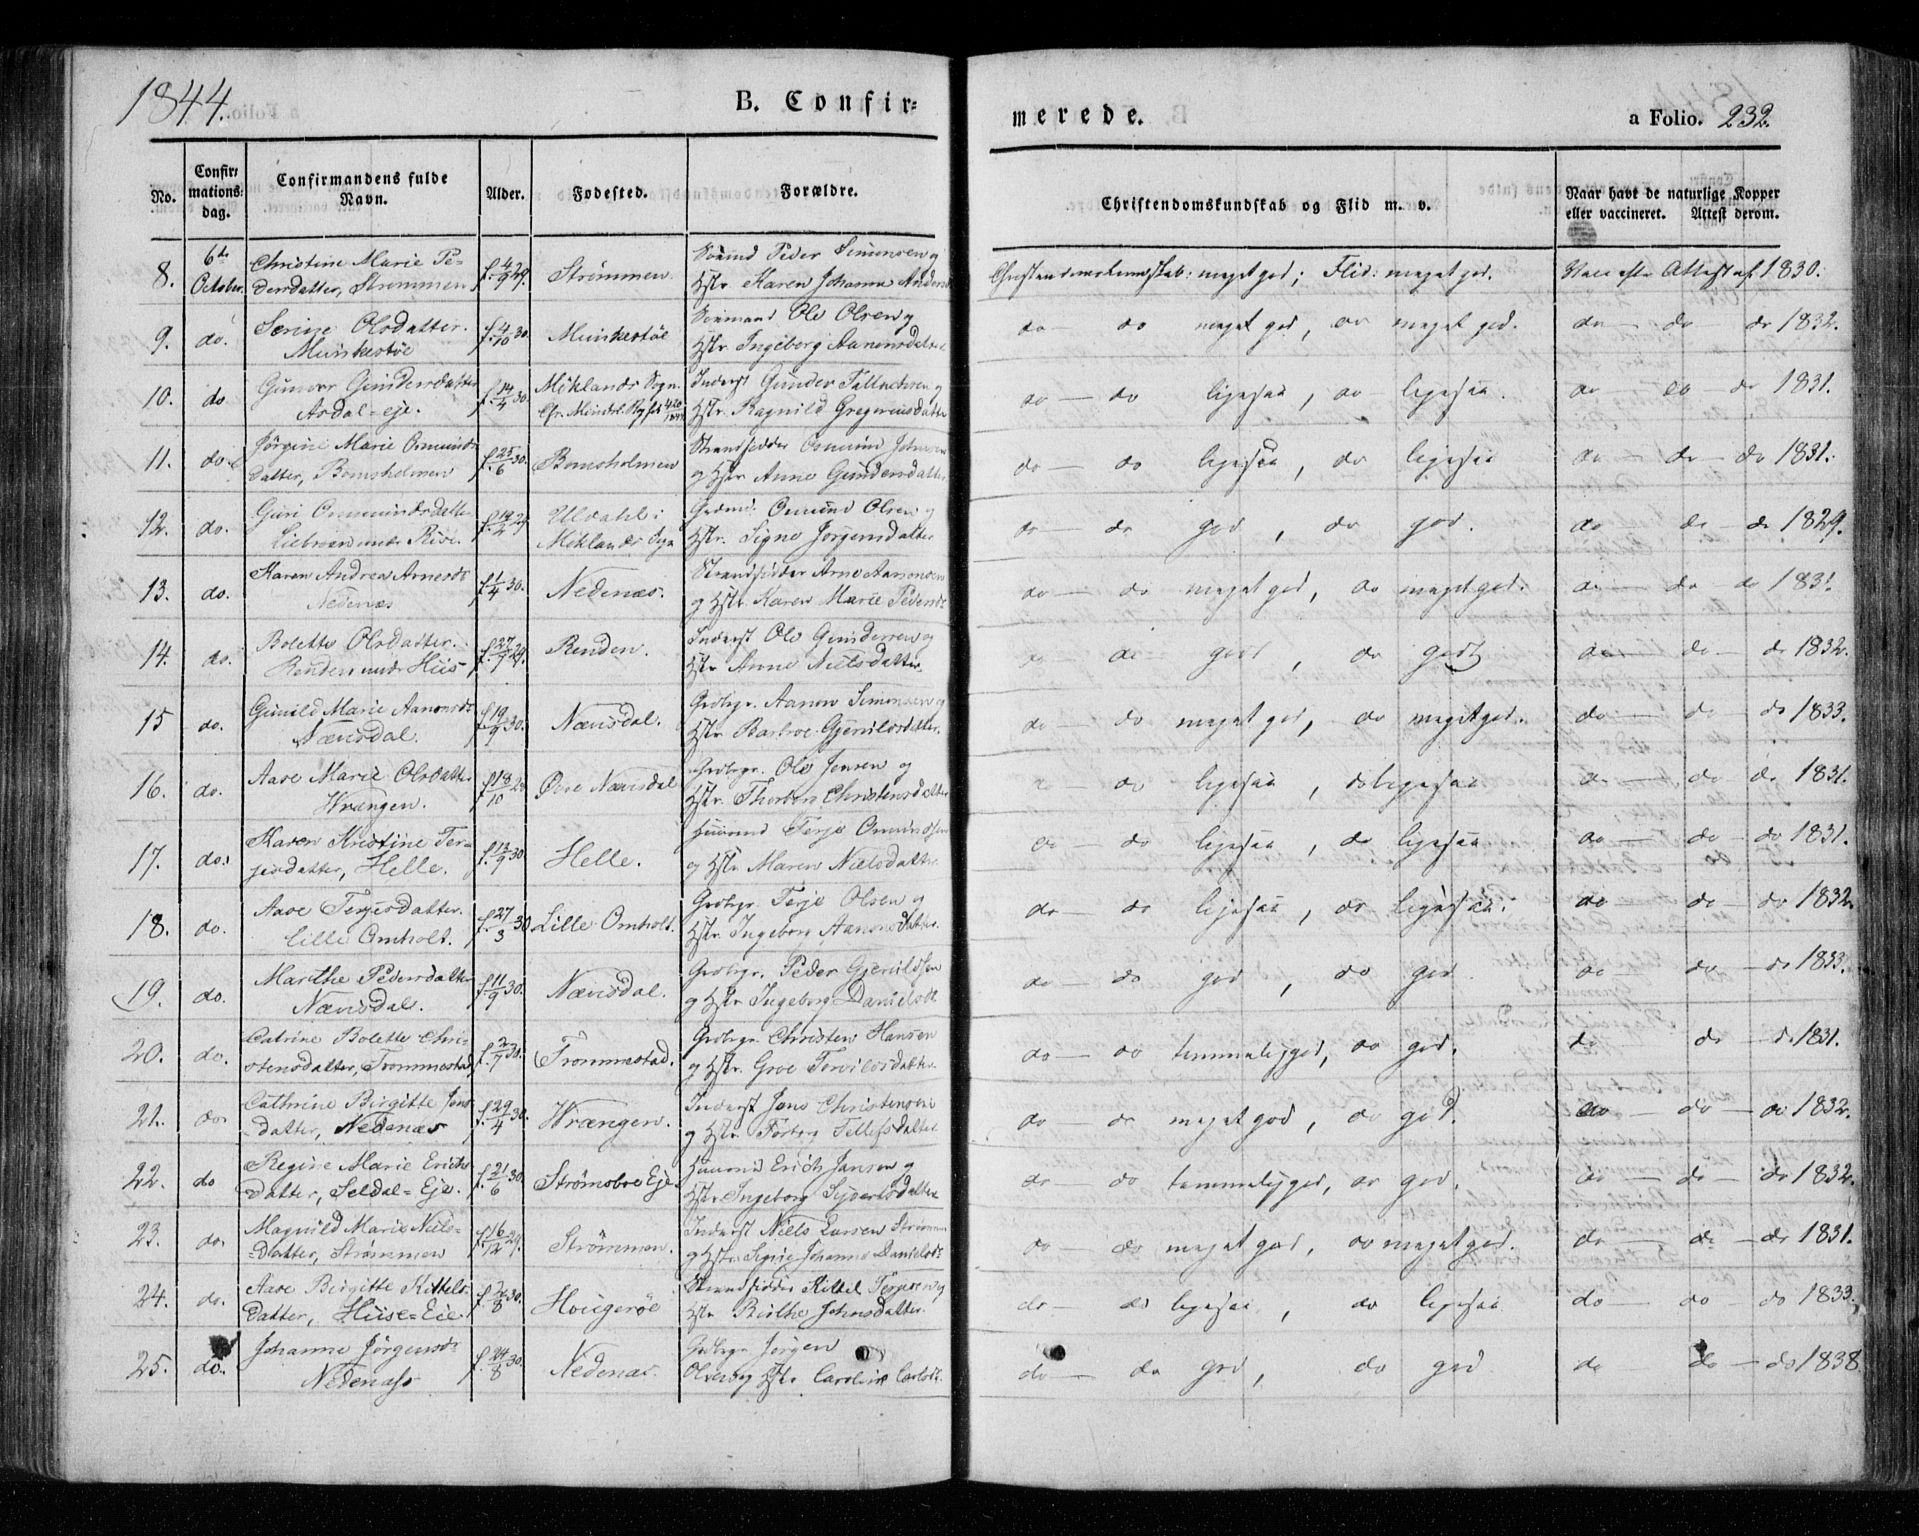 1844.
B. Confir=
merede.
a Folio. 232.
No.
Confir: mations: dag.
Confirmandens fulde Navn.
Alder.
Fødested.
Forældre.
Christendomskundskab og Flid m. v.
Naar havt de naturlige Kopper eller vaccineret. Attest derom.
8. 6te October. Christine Marie Pe- dersdatter, Strømmen f. 4/9 29. Strømmen. Peder Simonsen og Hstr. Karen Johanne Christendomskundskab: meget god; Flid: meget god. Vacc. efter Attest af 1830.
9. do. Serine Olsdatter. Munkestøe f. 4/10 30. Munkestøe Ole Olsen og Hstr. Ingeborg Aanonsdatter do — do meget god, do meget god. do — do — do 1832.
10. do Gunvor Gundersdatter Ardal=eje. f. 14/4 30. Møklands Sogn. Inderst Gunder og Hstr. Ragnild Gregoriusdatter do — do ligesaa, do ligesaa. do do — do 1831.
11. do Jørgine Marie Osmunds- datter, Bomsholmen f. 25/6 30. Bomsholmen Strandsidder Osmund og Hstr. Anne Gundersdatter do — do ligesaa, do ligesaa do — do — do 1831.
12. do. Guri Osmundsdatter f. 19/2 29 Uldahl i Møklands Sogn Osmund Olsen og Hstr. Signe Jørgensdatter do — do god, do god. do do do 1829.
13. do. Karen Andrea Arnesdr Nedenæs f. 1/4 30. Nedenæs. Strandsidder Arne Aanonsen og Hstr. Karen Marie Pedersdr do — do meget god, do meget god. do — do do 1831
14. do. Bolette Olsdatter. Renden under Huus f. 27/7 29. Renden. Inderst Ole Gundersen og Hstr. Anne Nielsdatter. do do godt, do godt do — do — do 1832.
15 do. Gunild Marie Aanonsdr Næusdal. f. 19/9 30. Næusdal. Grdbgr. Aanon Simonsen og Hstr. Barbroe Gjerulosdatter. do do meget god, do meget god. do do do 1833.
16. do. Aase Marie Olsdatter Wrængen. f. 18/10 Øvre Næusdal Grdbgr. Ole Jensen og Hstr. Thorborg Christensdatter do — do ligesaa, do ligesaa do — do do 1831.
17. do. Karen Kristine Ter- jesdatter, Helle. f. 13/9 30 Helle. Huusmd Terje Osmundsen og Hstr. Maren Nielsdatter. do — do ligesaa, do ligesaa do — do — do 1831.
18. do. Aase Terjesdatter. Lille Omholt. f. 27/3 30 Lille Omholt. Grdbgr. Terje Olsen og Hstr. Ingeborg Aanonsdatter. do — do ligesaa, do ligesaa. do — do — do 1832.
19. do. Marthe Pedersdatter Næusdal. f. 11/9 30. Næusdal. Grdbgr. Peder Gjeruldsen og Hstr. Ingeborg Danielsdr do — do god, do god. do do — do 1833.
20. do. Catrine Bolette Chri- stensdatter, Trommestad f. 2/7 30. Trommestad. Grdbgr. Christen Hansen og Hstr. Groe do — do temmelig god, do god. do do — do 1831.
21. do. Cathrine Birgitte Jens- datter, Nedenæs f. 29/4 30. Wrængen. Inderst Jens Christensen og Hstr. Torborg Tellefsdatter do do meget god, do god. do — do — do 1832.
22. do Regine Marie Erichs- datter, Seldal=Eje. f. 21/6 30. Strømsboe Eje. Huusmd Erich Jansen og Hstr. Ingeborg do — do temmelig god, do god. do — do — do 1832.
23. do. Magnild Marie Niels- datter, Strømmen f. 16/12 29. Strømmen. Inderst Niels Larsen Strømmen og Hstr. Signe Johanne Danielsdr do — do meget god, do meget god. do — do — do 1831.
24. do. Aase Birgitte Kittels- datter, Huse=Eie f. 2/8 30. Hougerøe Strandsidder Kittel Terjesen og Hstr. Birthe Johnsdatter. do — do ligesaa, do ligesaa do — do — do 1833.
25. do. Johanne Jørgensdr Nedenæss f. 24/8 30. Nedenæs. Grdbgr Jørgen Olsen og Hstr. Caroline do — do god, do god do do — do 1838